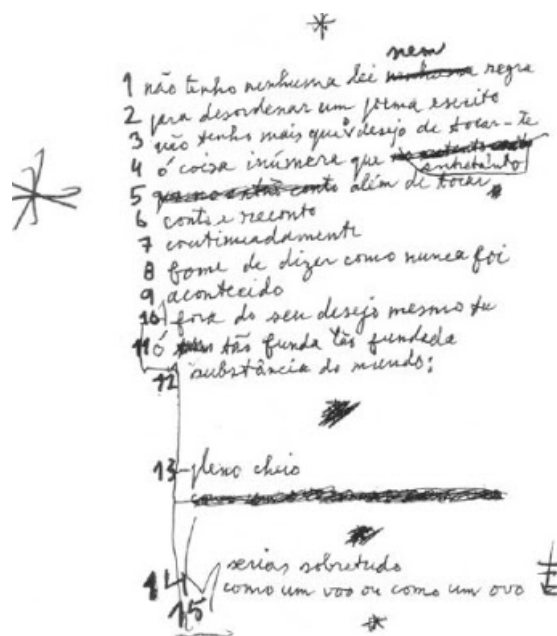 nem
1 não tenho nenhuma lei nenhuma regra
2 para desordenar um poema escrito
3 não tenho mais que o desejo de tocar-te
4 ó coisa inúmera que no entanto
entretanto
5 conto além de tocar
6 conto e reconto
7 continuadamente
8 fome de dizer como nunca foi
9 acontecido
10 fora do seu desejo mesmo tu
11 ó tão funda tão fundada
12 substância do mundo:
13 pleno cheio
14 serias sobretudo
15 como um voo ou como um ovo